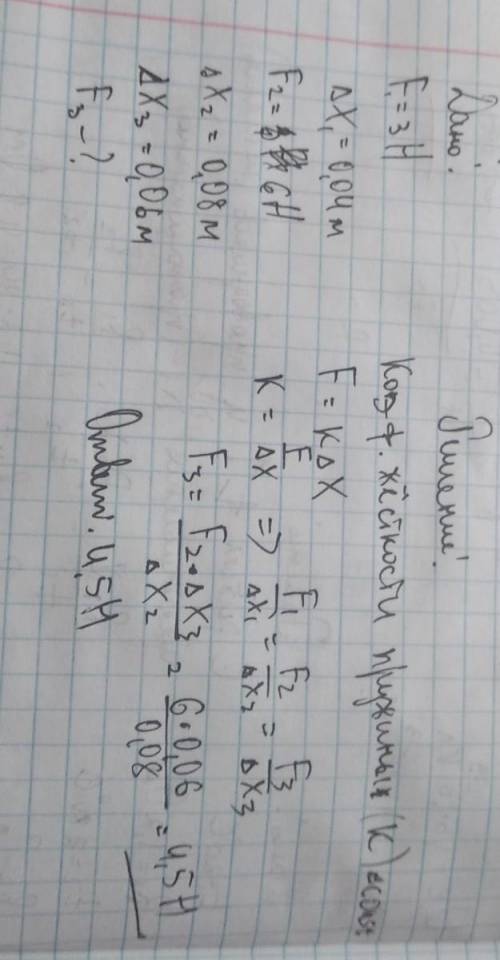 Дано:
F₁ = 3 Н
Δx₁ = 0,04 м
F₂ = 6 Н
Δx₂ = 0,08 м
Δx₃ = 0,06 м
F₃ - ?
Решение:
Коэф. жёсткости пружины (К)
F = K ΔX
K = F/ΔX => F₁/Δx₁ = F₂/Δx₂ = F₃/Δx₃
F₃ = F₂•ΔX₃/ΔX₂ = 6•0,06/0,08 = 4,5 Н
Ответ. 4,5 Н